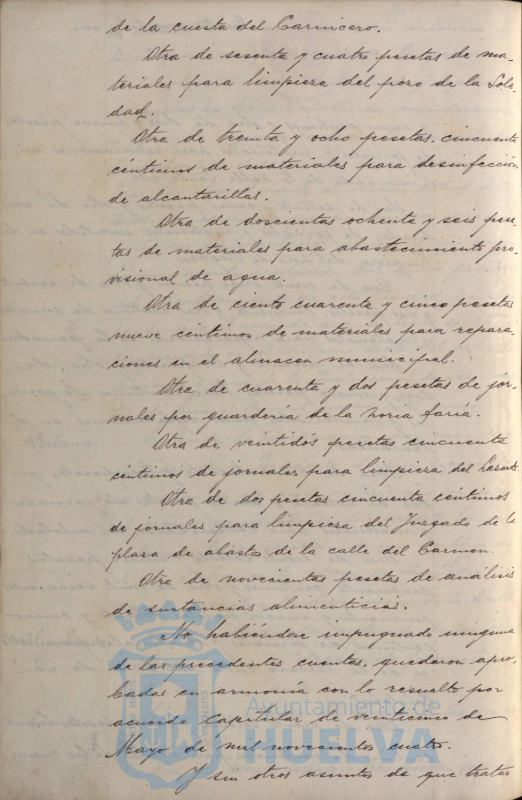 de la cuesta del Carnicero.
Otra de sesenta y cuatro pesetas de ma-
teriales para limpieza del pozo de la Sole
dad.
Otra de treinta y ocho pesetas, cincuenta
céntimos de materiales para desinfección
de alcantarillas.
Otra de doscientas ochenta y seis pese
tas de materiales para abastecimiento pro-
visional de agua.
Otra de ciento cuarenta y cinco pesetas
nueve céntimos de materiales para repara-
ciones en el almacen municipal.
Otra de cuarenta y dos pesetas de jor-
nales por guardería de la noria faría.
Otra de veintidós pesetas cincuenta
céntimos de jornales para limpieza del
Otra de dos pesetas cincuenta céntimos
de jornales para limpieza del Juzgado de la
plaza de abastos de la calle del Carmen.
Otra de novecientas pesetas de análisis
de sustancias alimenticias.
No habiéndose impugnado ninguna
de las precedentes cuentas, quedaron apro-
badas en armonía con lo resuelto por
acuerdo Capitular de veinticinco de
Mayo de mil novecientos cuatro.
Y sin otros asuntos de que tratar
Ayuntamiento de
HUELVA